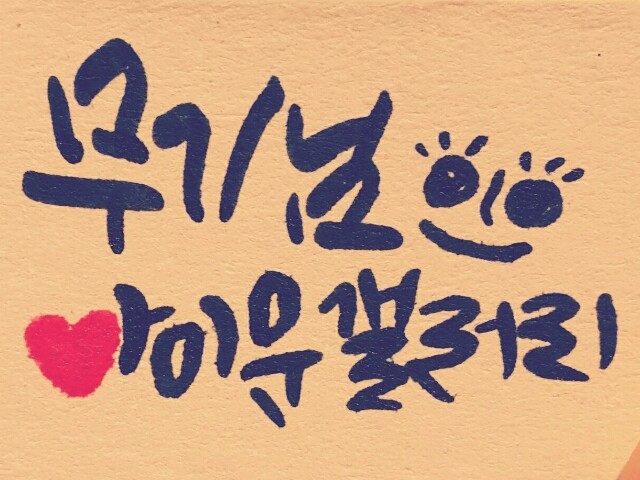 무기님
아이유갤러리